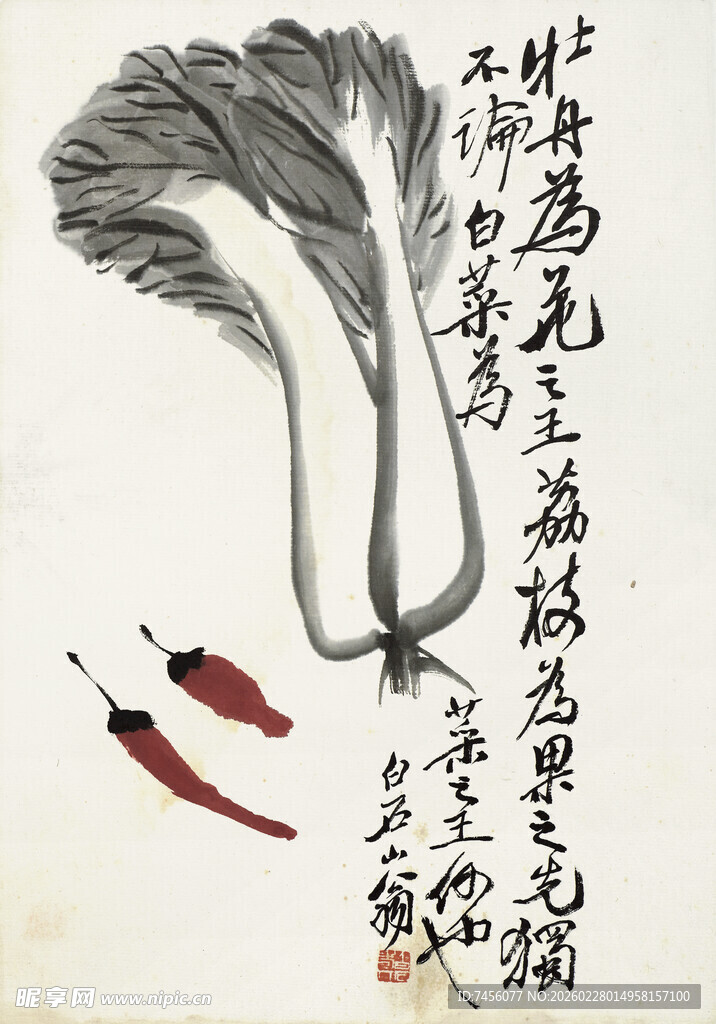 牡丹為花之王荔枝為果之先獨
不論白菜為
菜之王何也
白石山翁
昵享网 www.nipic.cn
ID:7456077 NO:20260228014958157100